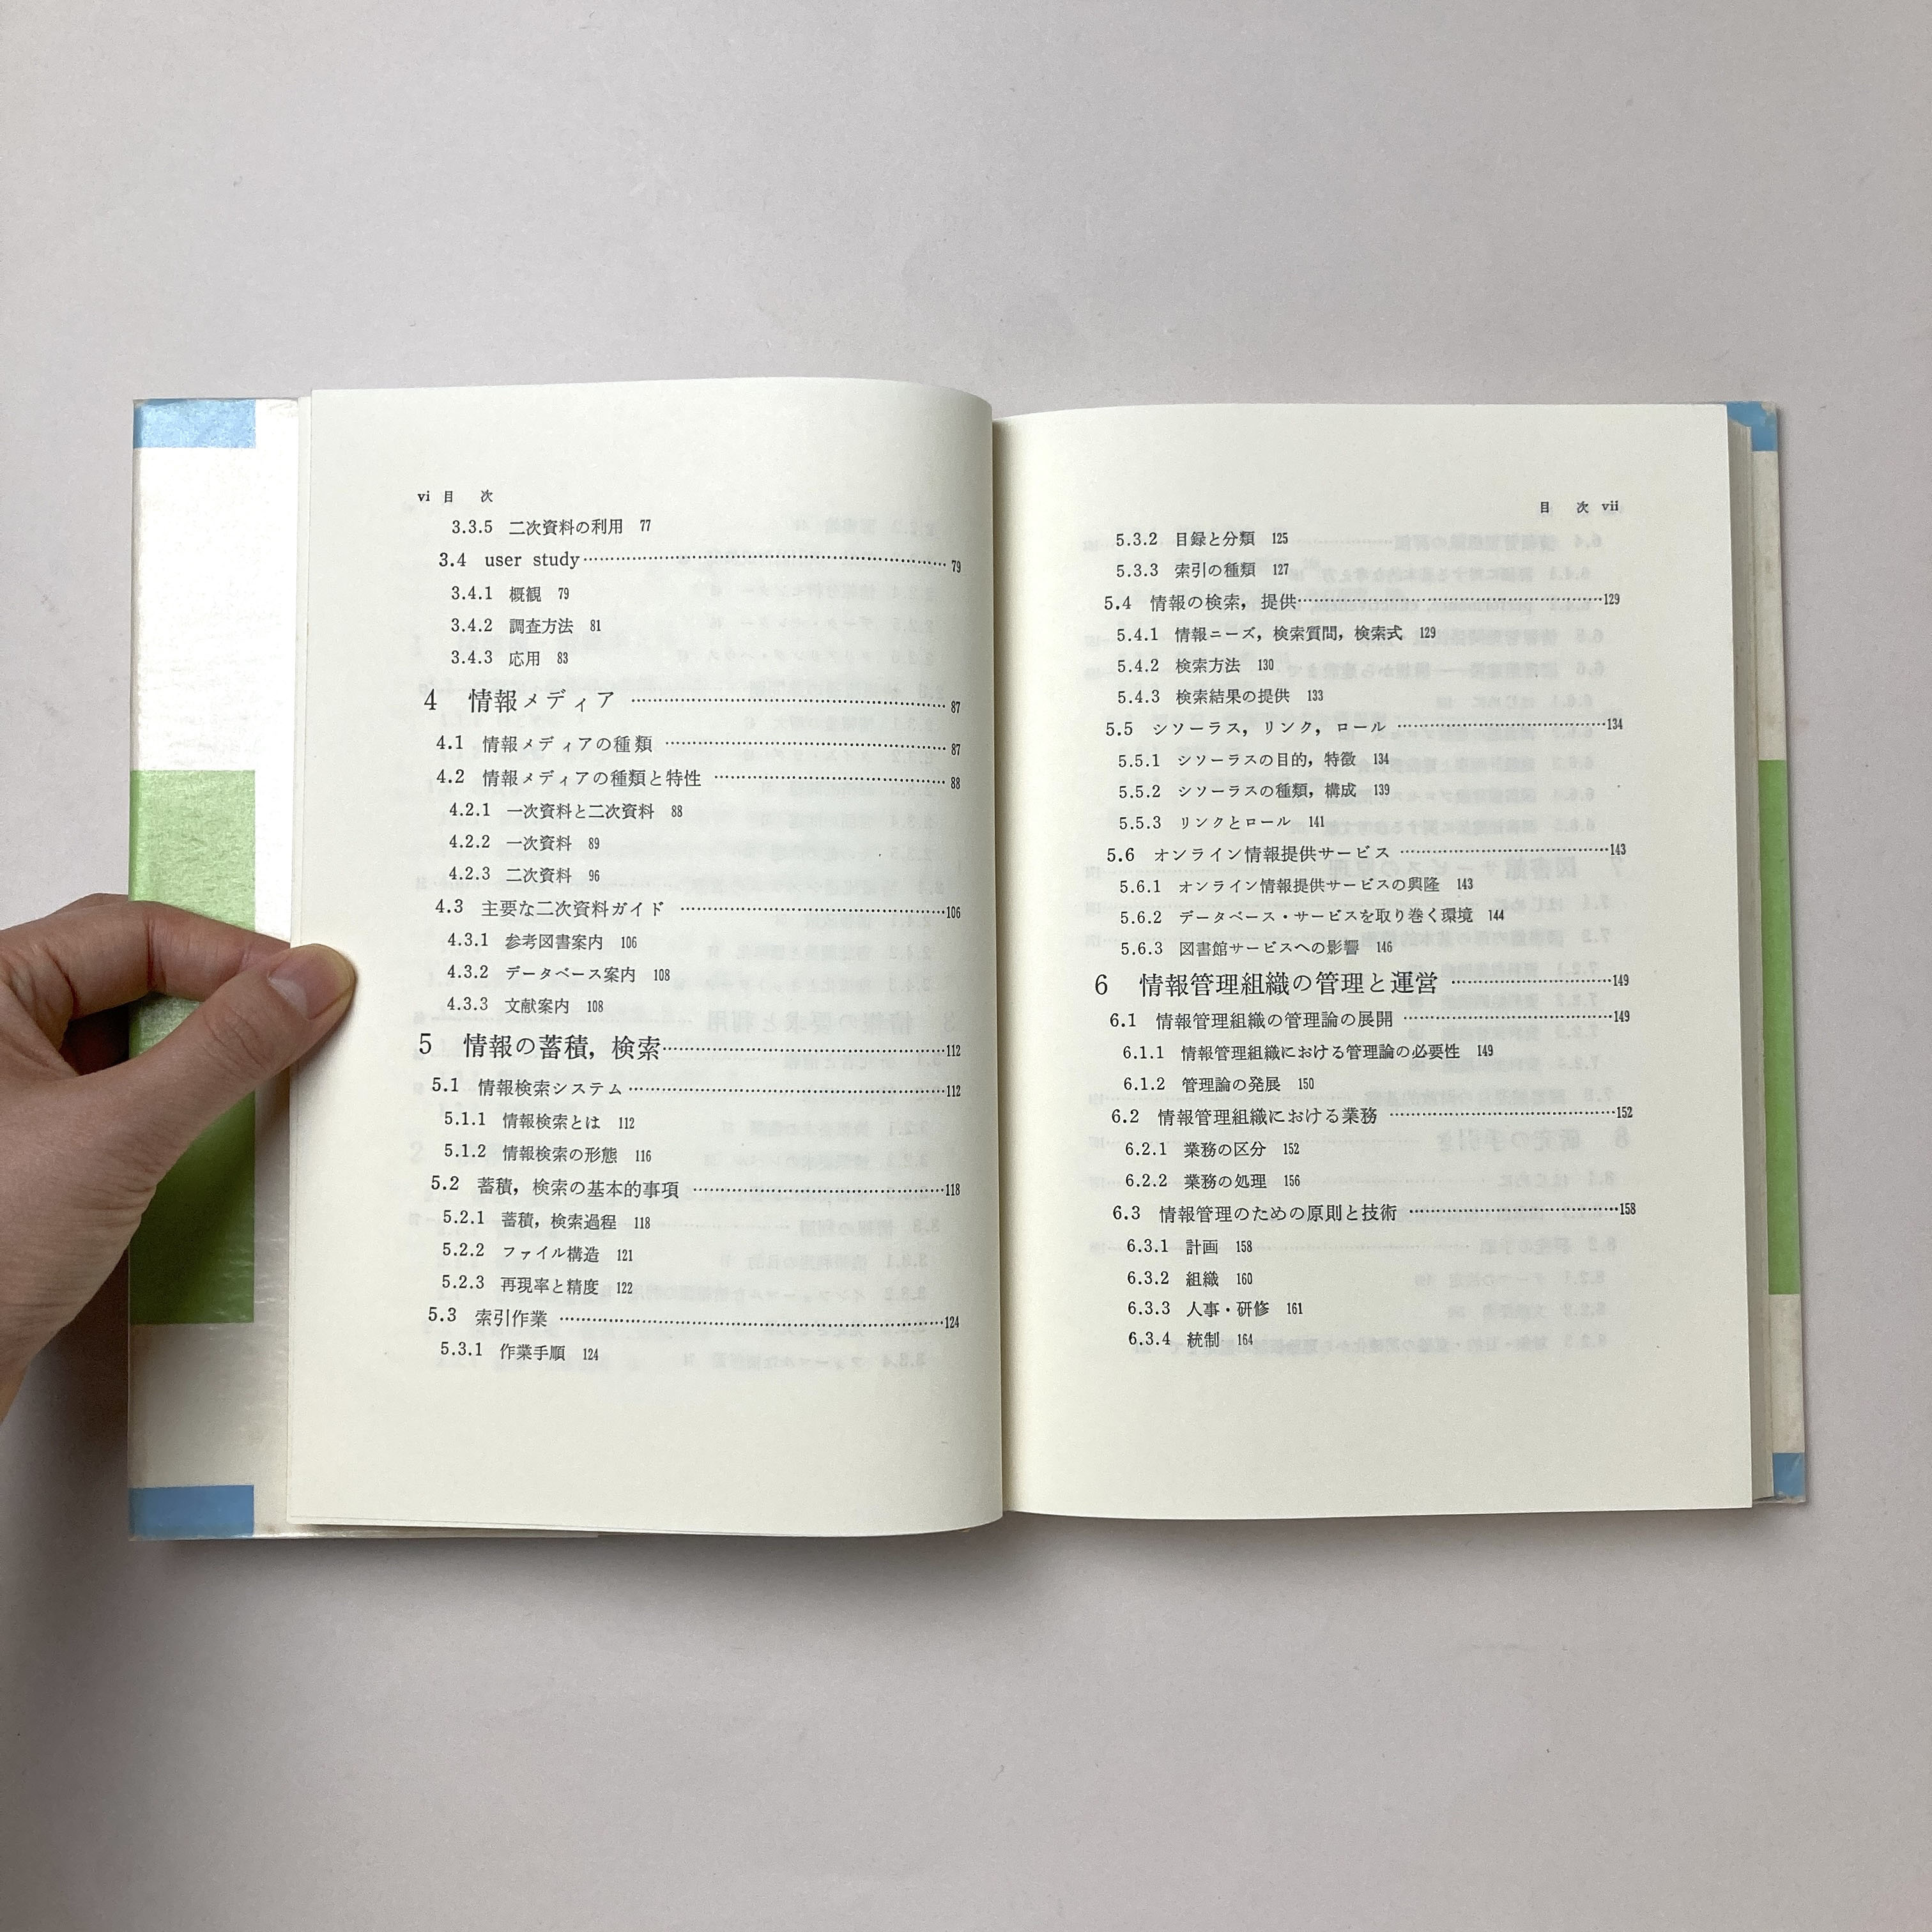 vi 目 次
3.3.5 二次資料の利用 77
3.4 user study………79
3.4.1 概観 79
3.4.2 調査方法 81
3.4.3 応用 83
4 情報メディア………87
4.1 情報メディアの種類………87
4.2 情報メディアの種類と特性………88
4.2.1 一次資料と二次資料 88
4.2.2 一次資料 89
4.2.3 二次資料 96
4.3 主要な二次資料ガイド………106
4.3.1 参考図書案内 106
4.3.2 データベース案内 108
4.3.3 文献案内 108
5 情報の蓄積，検索………112
5.1 情報検索システム………112
5.1.1 情報検索とは 112
5.1.2 情報検索の形態 116
5.2 蓄積，検索の基本的事項………118
5.2.1 蓄積，検索過程 118
5.2.2 ファイル構造 121
5.2.3 再現率と精度 122
5.3 索引作業………124
5.3.1 作業手順 124
目 次 vii
5.3.2 目録と分類 125
5.3.3 索引の種類 127
5.4 情報の検索，提供………129
5.4.1 情報ニーズ，検索質問，検索式 129
5.4.2 検索方法 130
5.4.3 検索結果の提供 133
5.5 シソーラス，リンク，ロール………134
5.5.1 シソーラスの目的，特徴 134
5.5.2 シソーラスの種類，構成 139
5.5.3 リンクとロール 141
5.6 オンライン情報提供サービス………143
5.6.1 オンライン情報提供サービスの興隆 143
5.6.2 データベース・サービスを取り巻く環境 144
5.6.3 図書館サービスへの影響 146
6 情報管理組織の管理と運営………149
6.1 情報管理組織の管理論の展開………149
6.1.1 情報管理組織における管理論の必要性 149
6.1.2 管理論の発展 150
6.2 情報管理組織における業務………152
6.2.1 業務の区分 152
6.2.2 業務の処理 156
6.3 情報管理のための原則と技術………158
6.3.1 計画 158
6.3.2 組織 160
6.3.3 人事・研修 161
6.3.4 統制 164